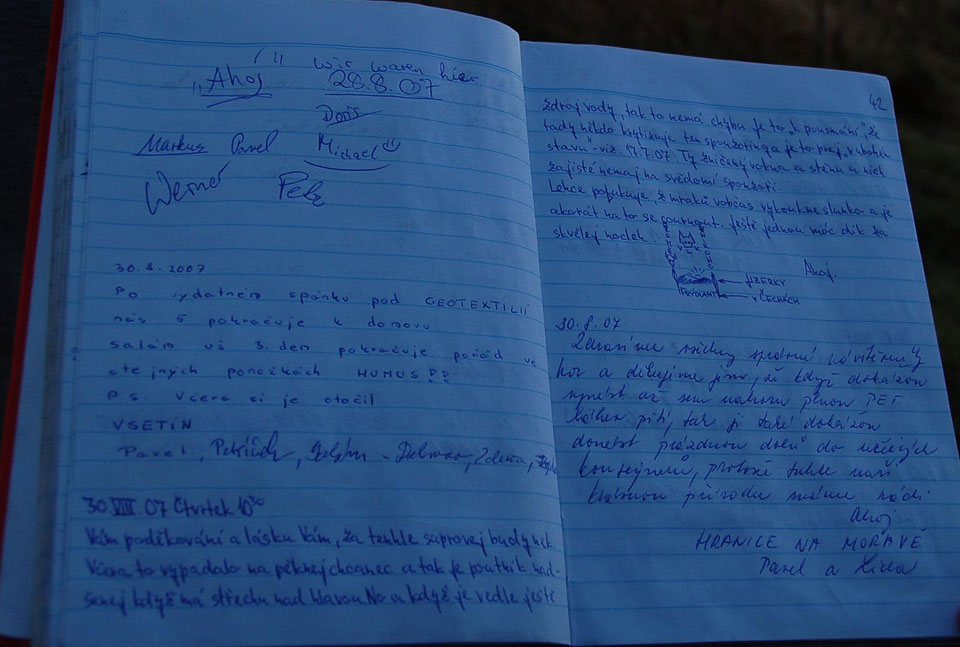 "Ahoj" wir waren hier
28.8.07
Doris
Markus Pavel Michael
Petr
30.8.2007
Po vydatném spánku pod GEOTEXTILIÍ
nás 5 pokračuje k domovu
salám už 3. den pokračuje pořád ve
stejných ponožkách HUMUS!?
P.S. včera si je otočil
VSETÍN
Pavel, Petříček, Zdena,
30 VIII 07 Čtvrtek 10³⁰
Vám poděkování a lásku Vám, za tenhle suprovej budynek.
Včera to vypadalo na pěknej chcanec a tak je poutník nad-
šenej když má střechu nad hlavou. No a když je vedle ještě
42
zdroj vody, tak to nemá chybu. Je to k pousmání, že
tady někdo krytizuje ten sponzoring a je to prej "v ubohém
stavu" viz. 17.7.07. Ty zničený vokna a stěnu u nich
zajisté nemaj na svědomí sponzoři.
Lehce pofukuje, z mraků vobčas vykoukne slunko a je
akorát na to se pournout. Ještě jednou moc dík za
skvělej nocleh.
Ahoj.
JIZERKY
v ČECHÁCH
30.8.07
Zdravíme všechny správné návštěvníky
hor a děkujeme jim, že když dokážou
vynést až sem nahoru plnou PET
láhev pití, tak ji také dokážou
donést prázdnou dolů do určených
kontejnerů, protože tuhle naši
krásnou přírodu máme rádi
Ahoj
HRANICE NA MORAVĚ
Pavel a Lída